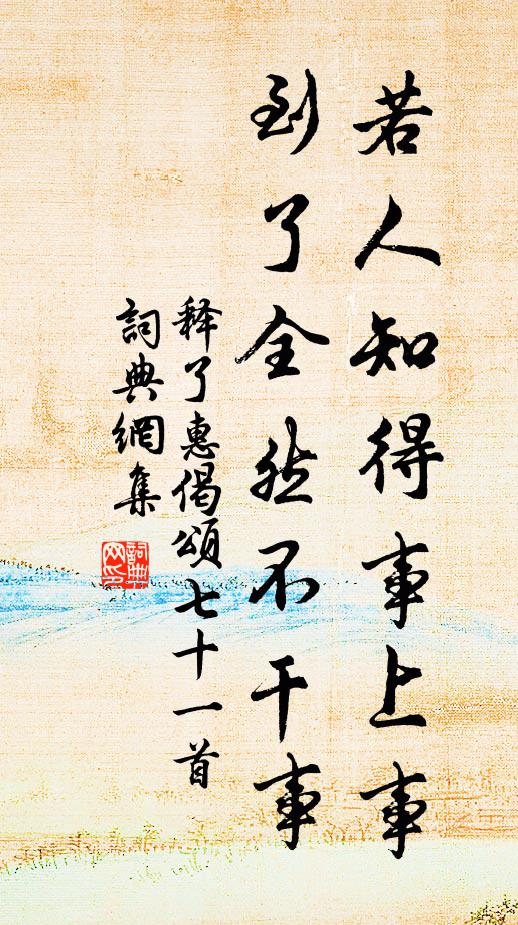 若人知得事上事
到了全然不干事
释了惠偈頌七十一首
詞典網集
詞典网印